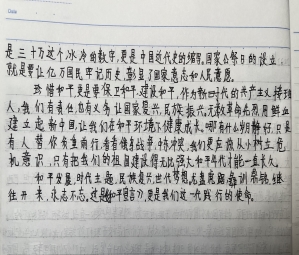 是三十万这个冰冷的数字,更是中国近代史的缩影,国家公祭日的设立,
就是要让亿万国民牢记历史,彰显了国家意志和人民意愿。
珍惜和平,更是要保卫和平,建设和平,作为新时代的共产主义接班
人,我们有责任,也有义务让国家复兴,民族振兴。无数革命先烈用鲜血
建立起新中国,让我们在和平环境下健康成长。哪有什么岁月静好,只是
有人替你负重前行,看看俄乌战争,中东冲突,我们更应从小树立危
机意识,只有把我们的祖国建设得无比强大和平年代才能一直长久。
和平发展,时代主题,民族复兴,世代梦想,
继往开来,永志不忘。这是和平宣言,更是我们这一代践行的使命。